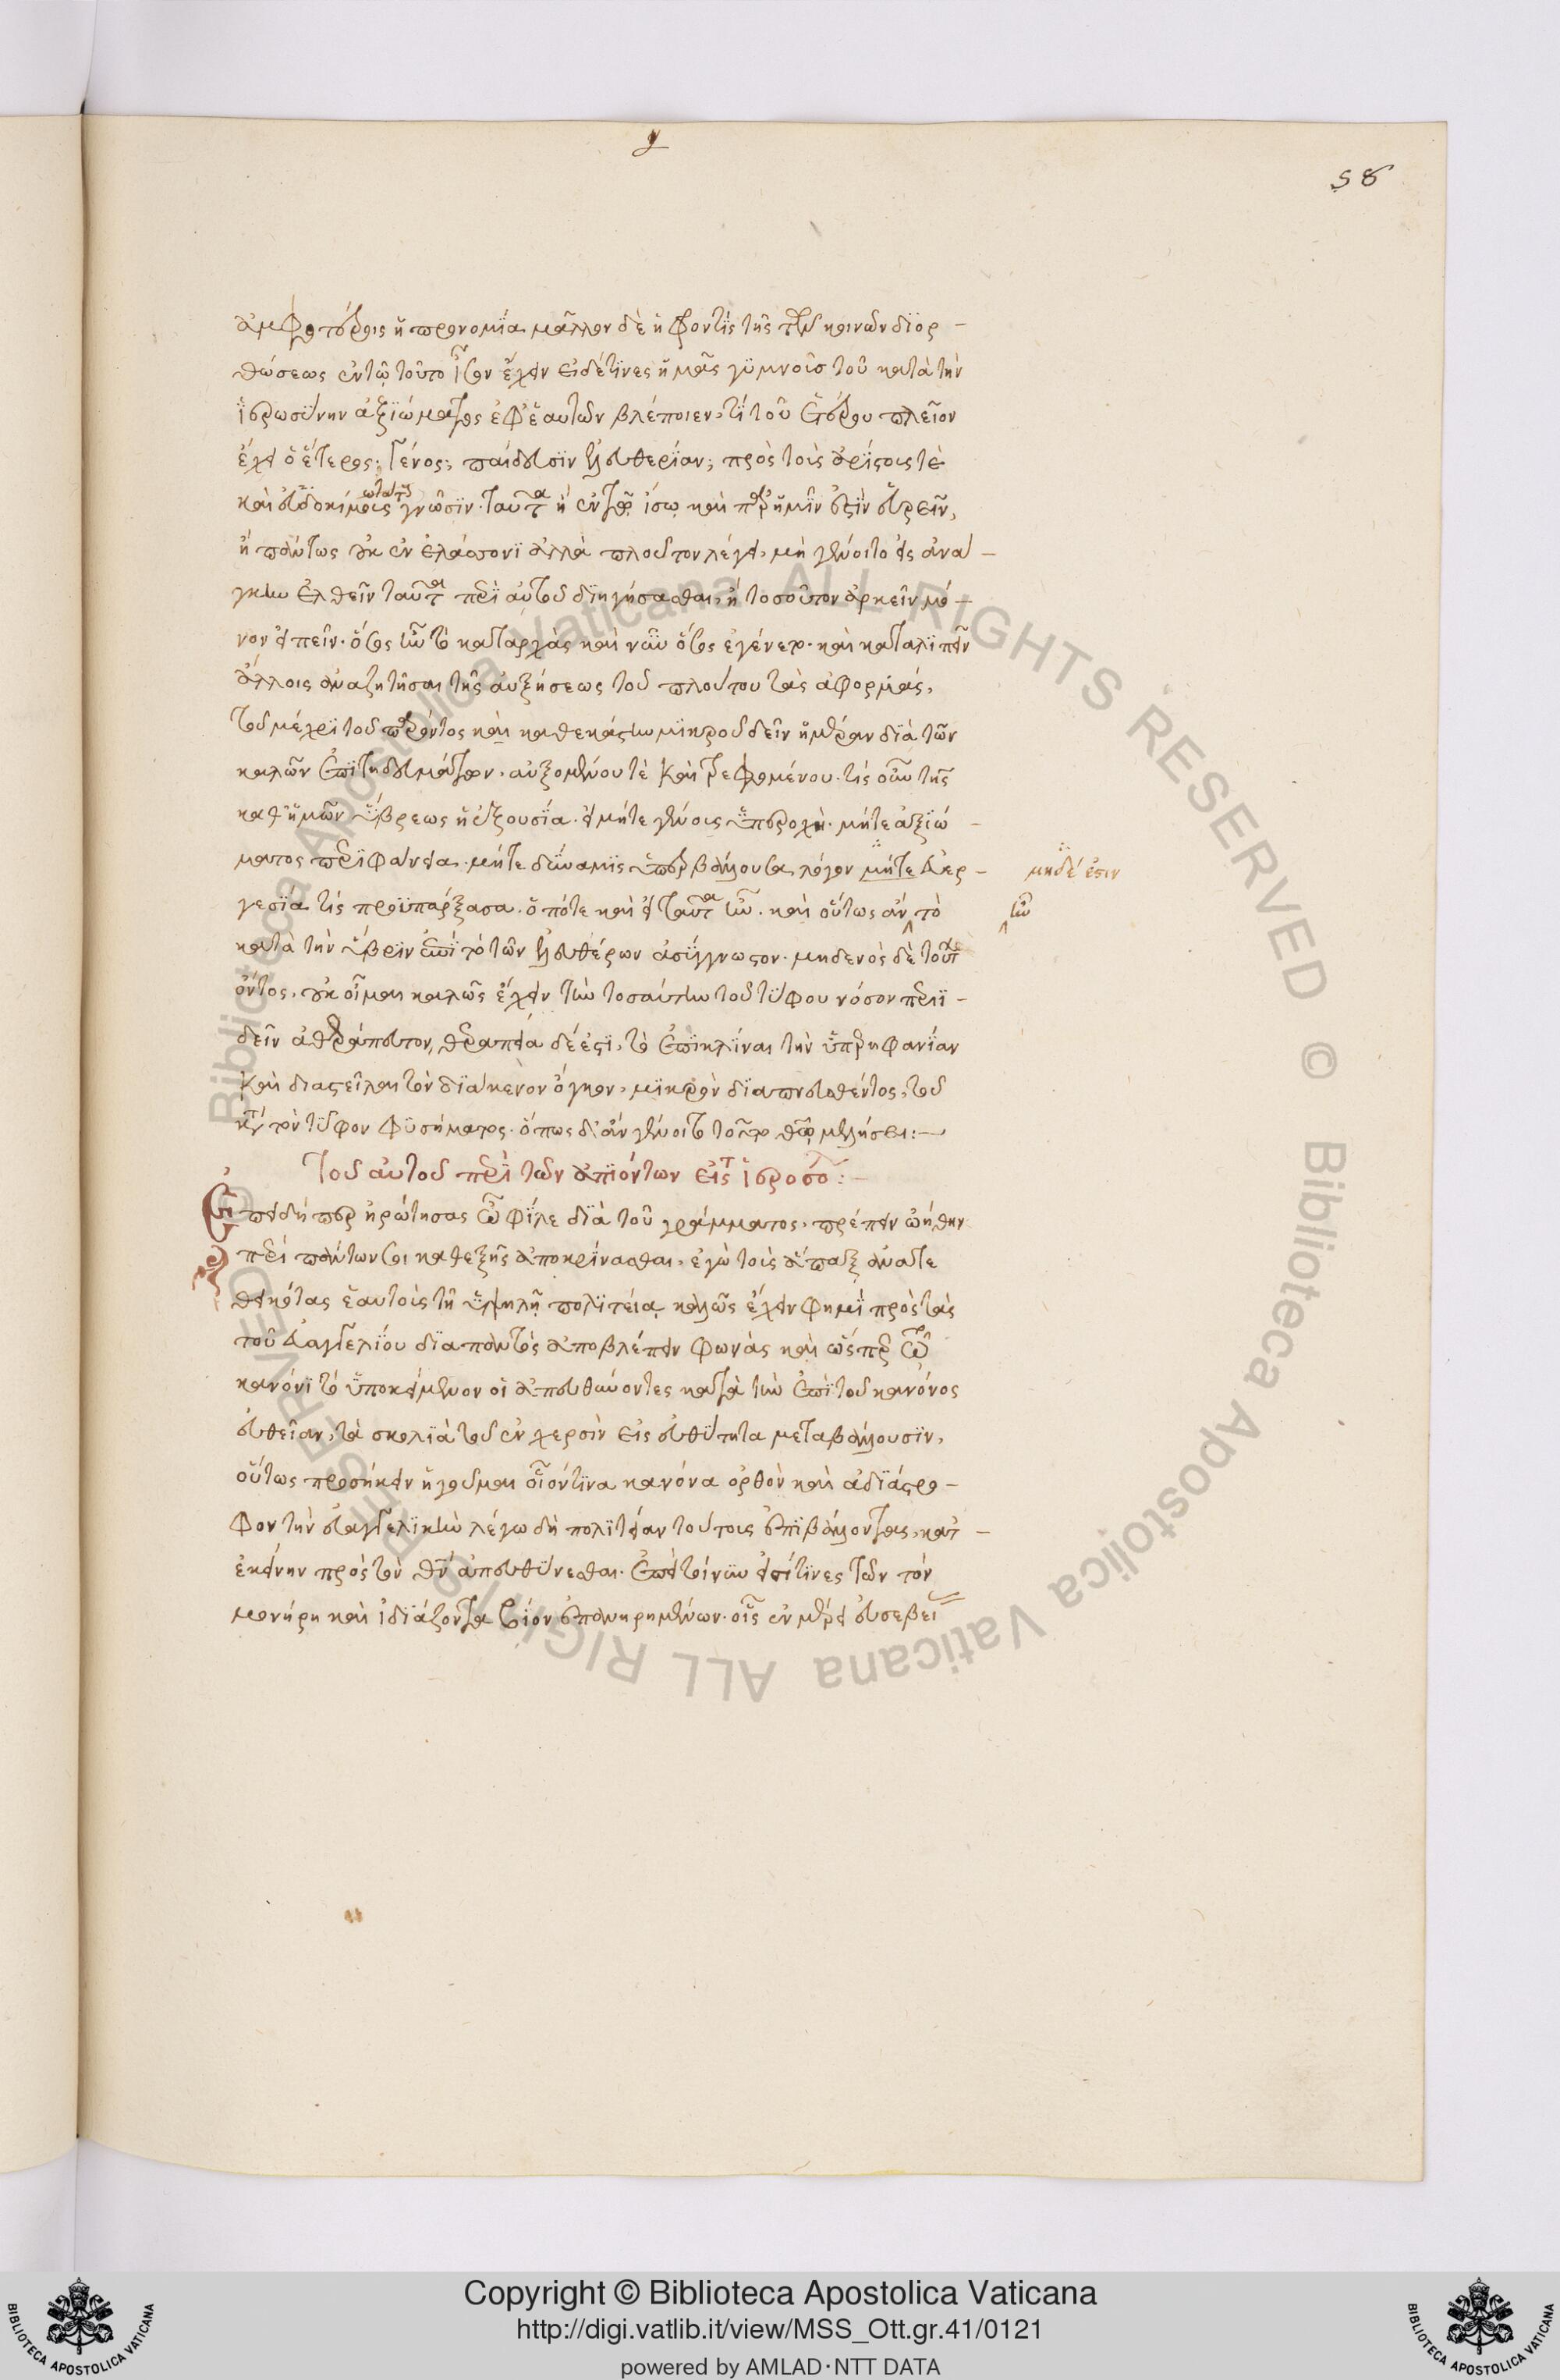 58
ἀμφοτέροις ἡ προνομία μᾶλλον δὲ ἡ φροντὶς τῆς τῶν κοινῶν διορ-
θώσεως ἐν τῶ τοῦτο ἴσον ἔχειν εἰ δέ τινες ἡμᾶς γυμνοὺς τοῦ κατὰ τὴν
ἱερωσύνην ἀξιώματος ἐφ' ἑαυτῶν βλέποιεν, τί τοῦ ἑτέρου πλεῖον
ἔχει ὁ ἕτερος; γένος; παίδευσιν ἐλευθερίαν; πρὸς τοὺς ἀρίστους τὲ
καὶ εὐδοκιμωτάτους γνῶσιν. ταῦτα ἢ ἐν τῶ ἴσω καὶ παρ' ἡμῖν ἐστὶν εὑρεῖν,
ἢ πάντως οὐκ ἐν ἐλάττονι ἀλλὰ πλοῦτον λέγει, μὴ γένοιτο εἰς ἀνά-
γκην ἐλθεῖν ταῦτα περὶ αὐτοῦ διηγήσασθαι, ἢ τοσοῦτον ἀρκεῖν μό-
νον εἰπεῖν. ὅσος ἦν τὸ καταρχὰς καὶ νῦν ὅσος ἐγένετο. καὶ καταλιπεῖν
ἄλλοις ἀναζητῆσαι τῆς αὐξήσεως τοῦ πλούτου τὰς ἀφορμάς,
τοῦ μέχρι τοῦ παρόντος καὶ καθεκάστην μικροῦ δεῖν ἡμέραν διὰ τῶν
καλῶν ἐπιτηδευμάτων. αὐξομένου τὲ καὶ τρεφομένου. τίς οὖν τῆς
καθ' ἡμῶν ὕβρεως ἡ ἐξουσία. εἰ μήτε γένους ὑπεροχὴ. μήτε ἀξιώ-
ματος περιφάνεια. μήτε δύναμις ὑπερβάλλουσα, λόγον μήτε εὐερ-
μηδέ ἐστιν
γεσία τὶς προϋπάρξασα. ὁπότε καὶ εἰ ταῦτα ἦν. καὶ οὕτως ἀν τὸ
ἦν
κατὰ τὴν ὕβριν ἐπὶ τὸ τῶν ἐλευθέρων ἀσύγγνωστον. μηδενὸς δὲ τούτων
ὄντος, οὐκ οἶμαι καλῶς ἔχειν τὴν τοσαύτην τοῦ τύφου νόσον περιϊ-
δεῖν ἀθεράπευτον, θεραπεία δέ ἐστι, τὸ ἐπικλῖναι τὴν ὑπερηφανίαν
καὶ διαστεῖλαι τὸν διάκενον ὄγκον, μικρὸν διαπνευσθέντος, τοῦ
κατὰ τὸν τύφον φυσήματος. ὅπως δ' ἂν γένοιτο τοῦτο θεῶ μελήσει:—
Τοῦ αὐτοῦ περὶ τῶν ἀπιόντων εἰς τὰ ἱεροσό:—
Ἐπειδήπερ ἠρώτησας ὦ φίλε διὰ τοῦ γράμματος, πρέπειν ὠήθην
περὶ πάντων σοι καθεξῆς ἀποκρίνασθαι, ἐγὼ τοὺς ἅπαξ ἀνατε
θεικότας ἑαυτοὺς τῆ ὑψηλῆ πολιτεία, καλῶς ἔχειν φημὶ πρὸς τὰς
τοῦ εὐαγγελίου διαπαντὸς ἀποβλέπειν φωνὰς καὶ ὥσπερ τῶ
κανόνι τὸ ὑποκείμενον οἱ ἀπευθύνοντες κατὰ τὴν ἐπὶ τοῦ κανόνος
εὐθεῖαν, τὰ σκολιὰ τοῦ ἐν χερσὶν εἰς εὐθύτητα μεταβάλλουσιν,
οὕτως προσήκειν ἡγοῦμαι οἷόν τινα κανόνα ὀρθὸν καὶ ἀδιάστρο-
φον τὴν εὐαγγελικὴν λέγω δὴ πολιτείαν τούτοις ἐπιβάλλοντας, κατ'-
ἐκείνην πρὸς τὸν θν ἀπευθύνεσθαι. ἐπεὶ τοίνυν εἰσί τινες τῶν τὸν
μονήρη καὶ ἰδιάζοντα βίον ἐπανηρημένων. οἷς ἐν μέρει εὐσεβεί